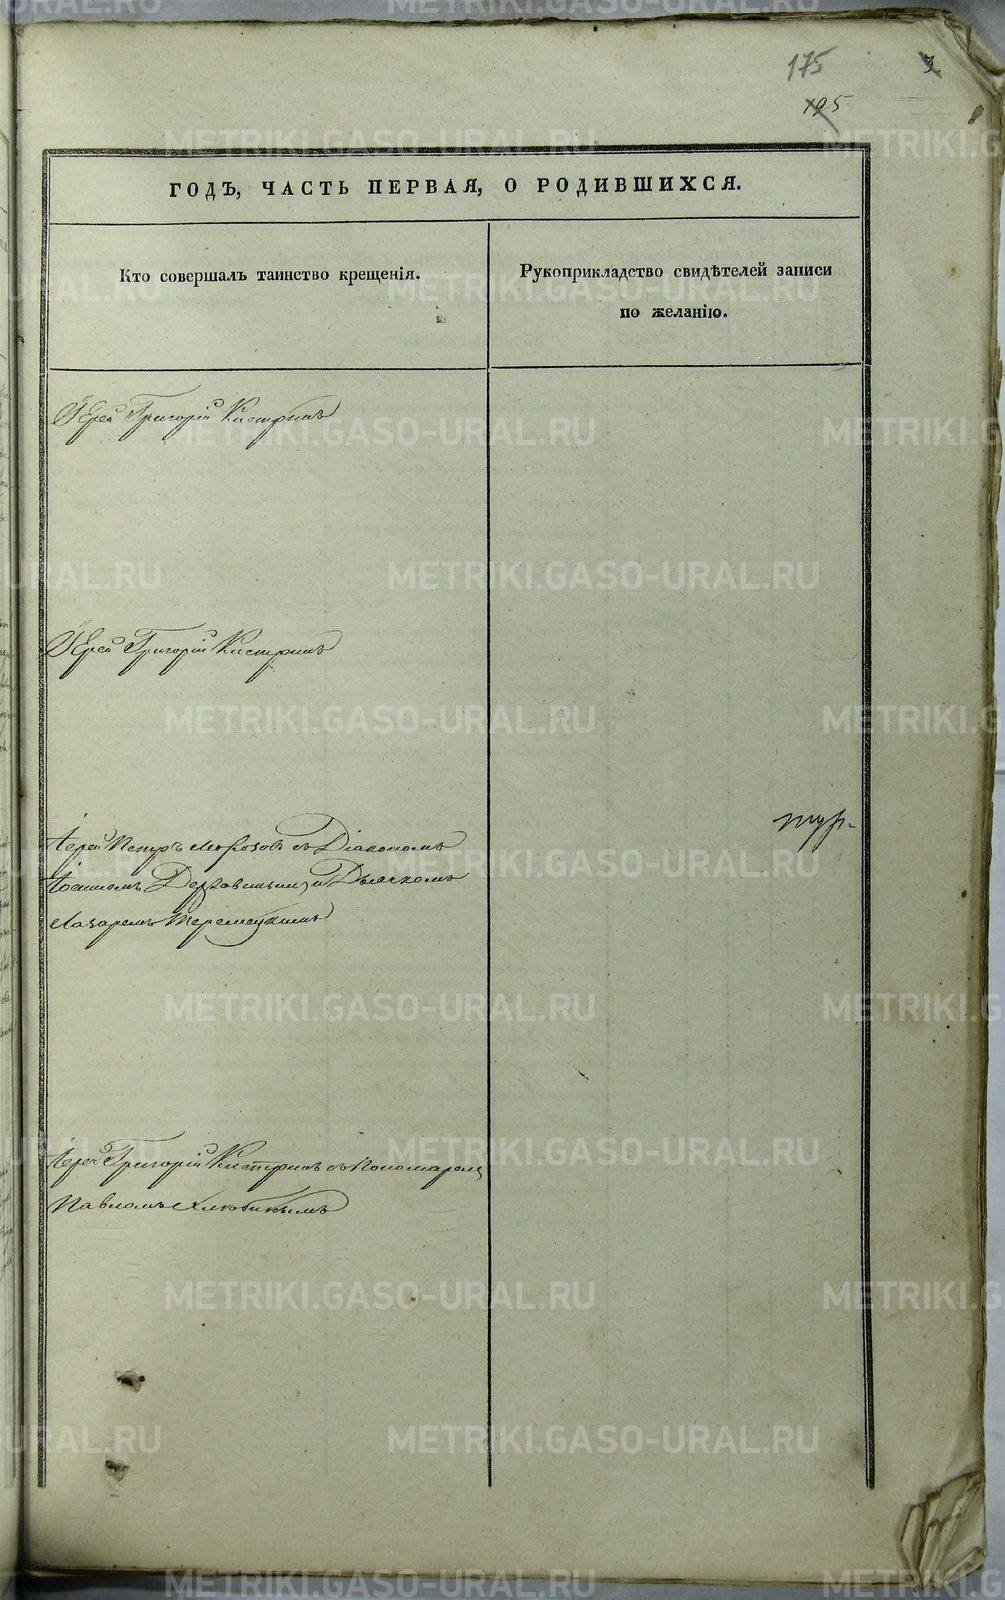 175
3
195
ГОДЪ, ЧАСТЬ ПЕРВАЯ, О РОДИВШИХСЯ.
Кто совершалъ таинство крещенія.
Рукоприкладство свидѣтелей записи
по желанію.
Іерей Григорій Кистринъ
Іерей Григорій Кистринъ
тур.
Іерей Петръ Морозовъ съ Діакономъ
Іоанномъ Державинымъ и Дьячкомъ
Лазаремъ
Іерей Григорій Кистринъ съ Пономаремъ
Павломъ Хлюбинымъ
METRIKI.GASO-URAL.RU